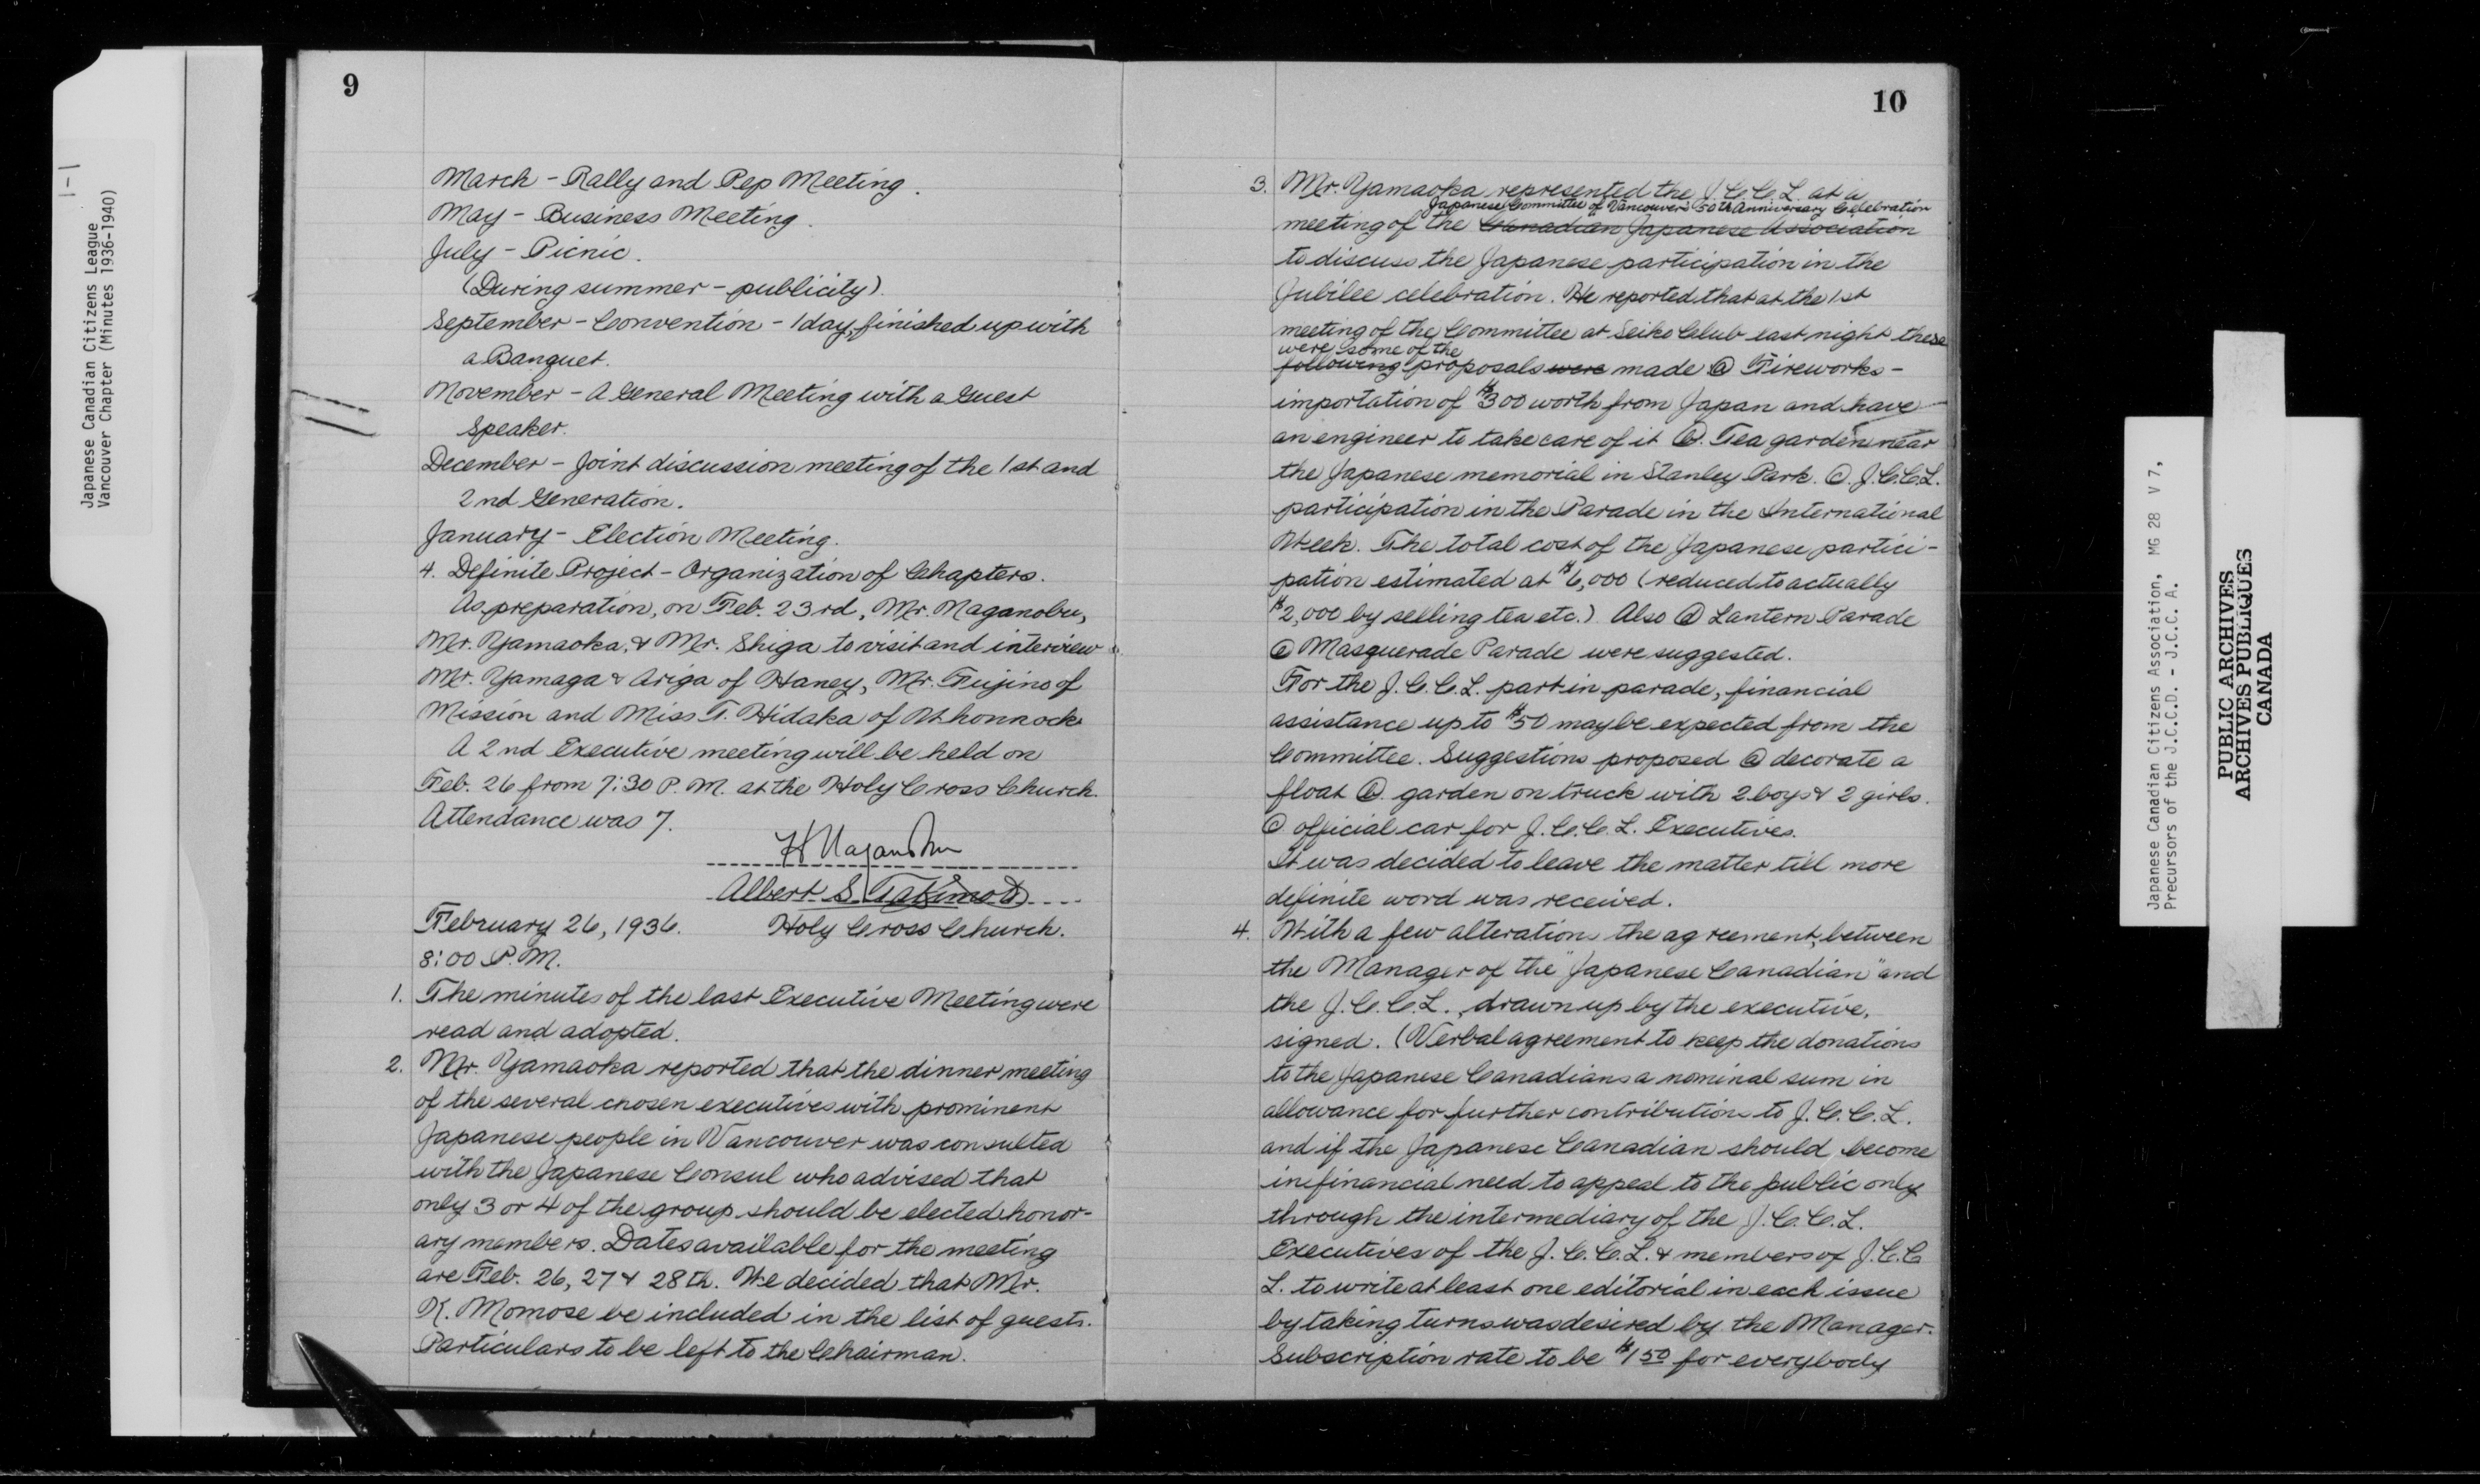 1-1
Japanese Canadian Citizens League
Vancouver Chapter (Minutes 1936-1940)
9
March - Rally and Pep Meeting.
May - Business Meeting.
July - Picnic.
(During summer - publicity).
September - Convention - 1 day, finished up with
a Banquet.
November - A General Meeting with a Guest
Speaker.
December - Joint discussion meeting of the 1st and
2nd Generation.
January - Election Meeting.
4. Definite Project - Organization of Chapters.
As preparation, on Feb. 23rd, Mr. Naganobu,
Mr. Yamaoka, & Mr. Shiga to visit and interview
Mr. Yamaga & Ariga of Haney, Mr. Fujino of
Mission and Miss T. Hidaka of Whonnock
A 2nd Executive meeting will be held on
Feb. 26 from 7:30 P.M. at the Holy Cross Church.
Attendance was 7.
H Naganobu
Albert S. Takimoto
February 26, 1936. Holy Cross Church.
8:00 P.M.
1. The minutes of the last Executive Meeting were
read and adopted.
2. Mr. Yamaoka reported that the dinner meeting
of the several chosen executives with prominent
Japanese people in Vancouver was consulted
with the Japanese Consul who advised that
only 3 or 4 of the group should be elected honor-
ary members. Dates available for the meeting
are Feb. 26, 27 & 28th. We decided that Mr.
K. Momose be included in the list of guests.
Particulars to be left to the Chairman.
10
3. Mr. Yamaoka represented the J.C.C.L. at a
Japanese Committee of Vancouver's 50th Anniversary Celebration
meeting of the Canadian Japanese Association
to discuss the Japanese participation in the
Jubilee celebration. He reported that at the 1st
meeting of the Committee at Seiko Club last night these
were some of the
following proposals were made (a) Fireworks -
importation of $300 worth from Japan and have
an engineer to take care of it (b). Tea garden near
the Japanese memorial in Stanley Park. (c). J.C.C.L.
participation in the Parade in the International
Week. The total cost of the Japanese partici-
pation estimated at $6,000 (reduced to actually
$2,000 by selling tea etc.) Also (d) Lantern Parade
(e) Masquerade Parade were suggested.
For the J.C.C.L. part in parade, financial
assistance up to $50 may be expected from the
Committee. Suggestions proposed (a) decorate a
float (b). garden on truck with 2 boys & 2 girls.
(c) official car for J.C.C.L. Executives.
It was decided to leave the matter till more
definite word was received.
4. With a few alterations the agreement, between
the Manager of the "Japanese Canadian" and
the J.C.C.L., drawn up by the executive,
signed. (Verbal agreement to keep the donations
to the Japanese Canadians a nominal sum in
allowance for further contributions to J.C.C.L.
and if the Japanese Canadian should become
in financial need to appeal to the public only
through the intermediary of the J.C.C.L.
Executives of the J.C.C.L. & members of J.C.C
L. to write at least one editorial in each issue
by taking turns was desired by the Manager.
Subscription rate to be $1 50 for everybody
Japanese Canadian Citizens Association, MG 28 V 7,
Precursors of the J.C.C.D. - J.C.C. A.
PUBLIC ARCHIVES
ARCHIVES PUBLIQUES
CANADA